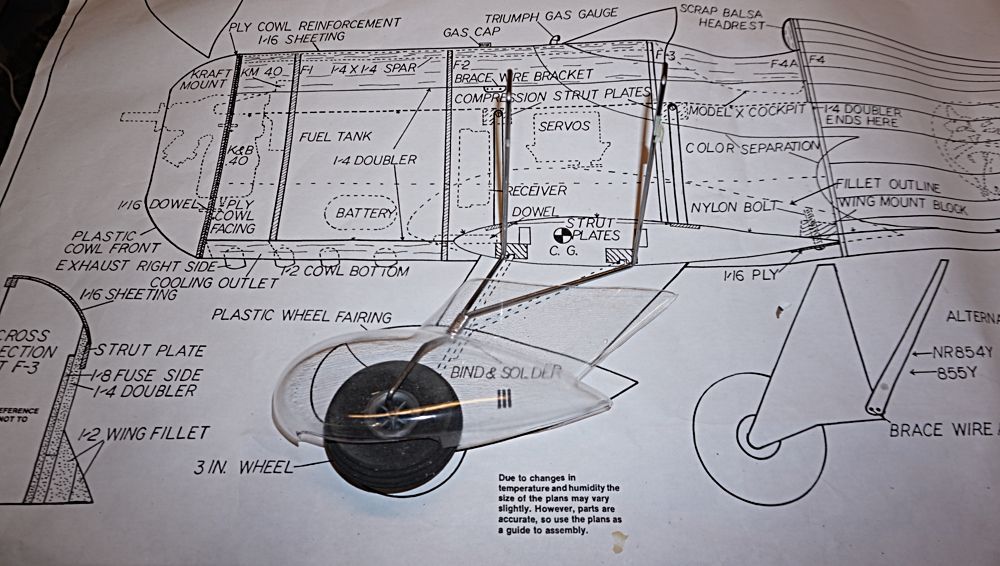 PLY COWL REINFORCEMENT
1⋅16 SHEETING
GAS CAP
TRIUMPH GAS GAUGE
SCRAP BALSA
HEADREST
KRAFT
MOUNT
KM 40
F-1
1⋅4 X 1⋅4 SPAR
F-2
F-3
F-4A
F-4
BRACE WIRE BRACKET
COMPRESSION STRUT PLATES
MODEL X COCKPIT
1⋅4 DOUBLER
ENDS HERE
K&B
40
FUEL TANK
1⋅4 DOUBLER
SERVOS
COLOR SEPARATION
RECEIVER
FILLET OUTLINE
WING MOUNT BLOCK
1⋅16 DOWEL
PLY
COWL
FACING
BATTERY
DOWEL
STRUT
PLATES
C. G.
NYLON BOLT
PLASTIC
COWL FRONT
EXHAUST RIGHT SIDE
COOLING OUTLET
1⋅2 COWL BOTTOM
1⋅16 PLY
1⋅16 SHEETING
PLASTIC WHEEL FAIRING
CROSS
ECTION
T F-3
STRUT PLATE
1⋅8 FUSE SIDE
1⋅4 DOUBLER
EFERENCE
NOT TO
1⋅2 WING FILLET
BIND & SOLDER
3 IN. WHEEL
ALTERNA
NR854Y
855Y
BRACE WIRE
Due to changes in
temperature and humidity the
size of the plans may vary
slightly. However, parts are
accurate, so use the plans as
a guide to assembly.